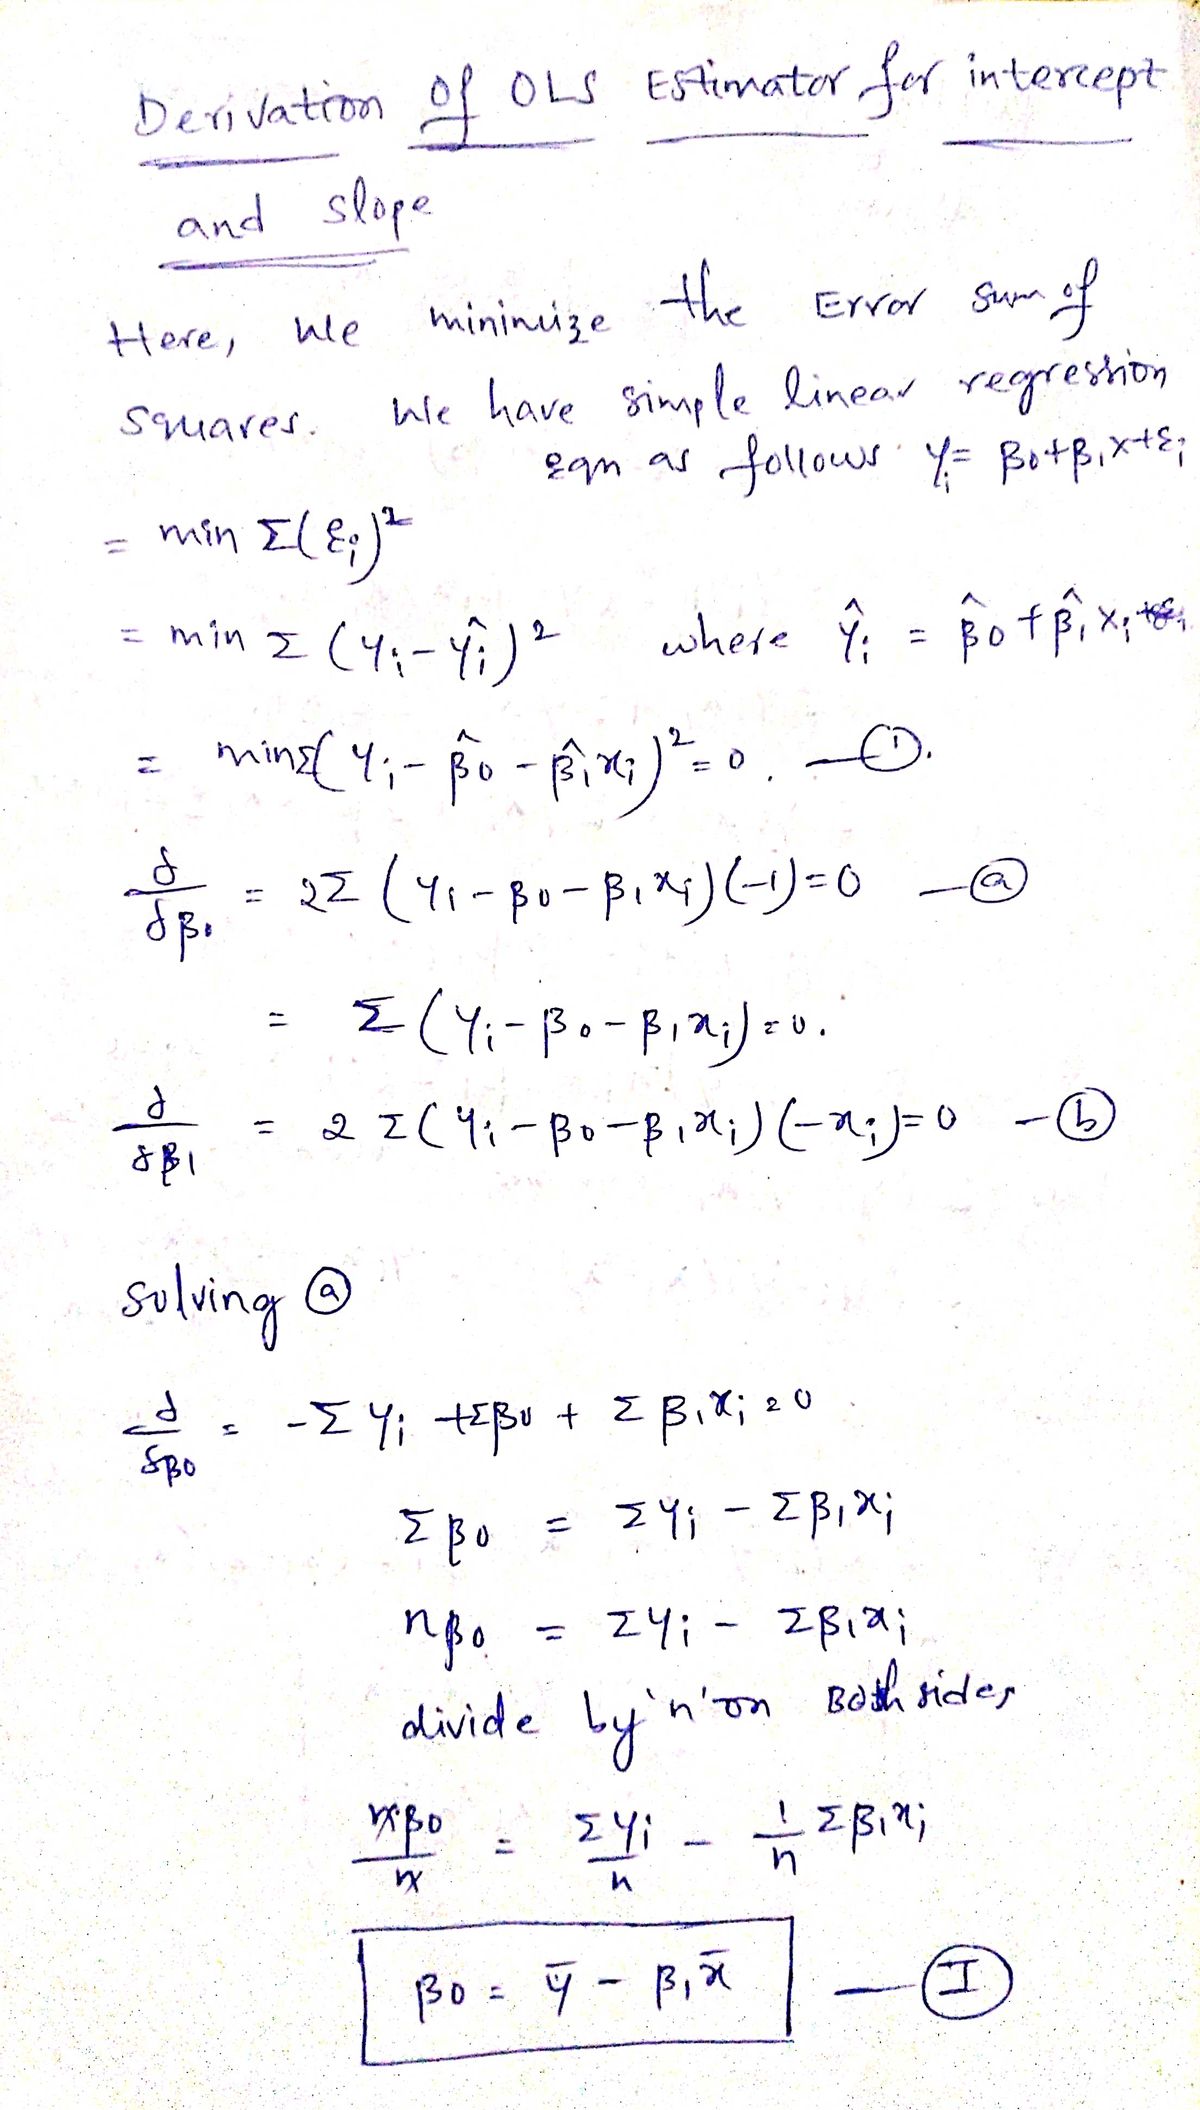 Derivation of OLS Estimator for intercept
and slope
Here, we minimize the Error sum of
squares. We have simple linear regression
eqn as follows yᵢ = β0+β₁x+εᵢ
= min Σ(εᵢ)²
= min Σ (yᵢ-ŷᵢ)² where ŷᵢ = β̂0+β̂₁xᵢ
= minΣ(yᵢ- β̂0 - β̂₁xᵢ)²=0. —①.
∂/∂β₀ = 2Σ (yᵢ-β0-β₁xᵢ)(-1)=0 —ⓐ
= Σ(yᵢ-β₀-β₁xᵢ)=0.
∂/∂β1 = 2 Σ(yᵢ-β0-β₁xᵢ)(-xᵢ)=0 -ⓑ
solving ⓐ
∂/∂β0 = -Σyᵢ +Σβ0 + Σβ₁xᵢ=0
Σβ0 = Σyᵢ - Σβ₁xᵢ
nβ₀ = Σyᵢ - Σβ₁xᵢ
divide by 'n' on Both sides
nβ0/n = Σyᵢ/n - 1/n Σβ₁xᵢ
β0 = ȳ - β₁x̄ —Ⓘ